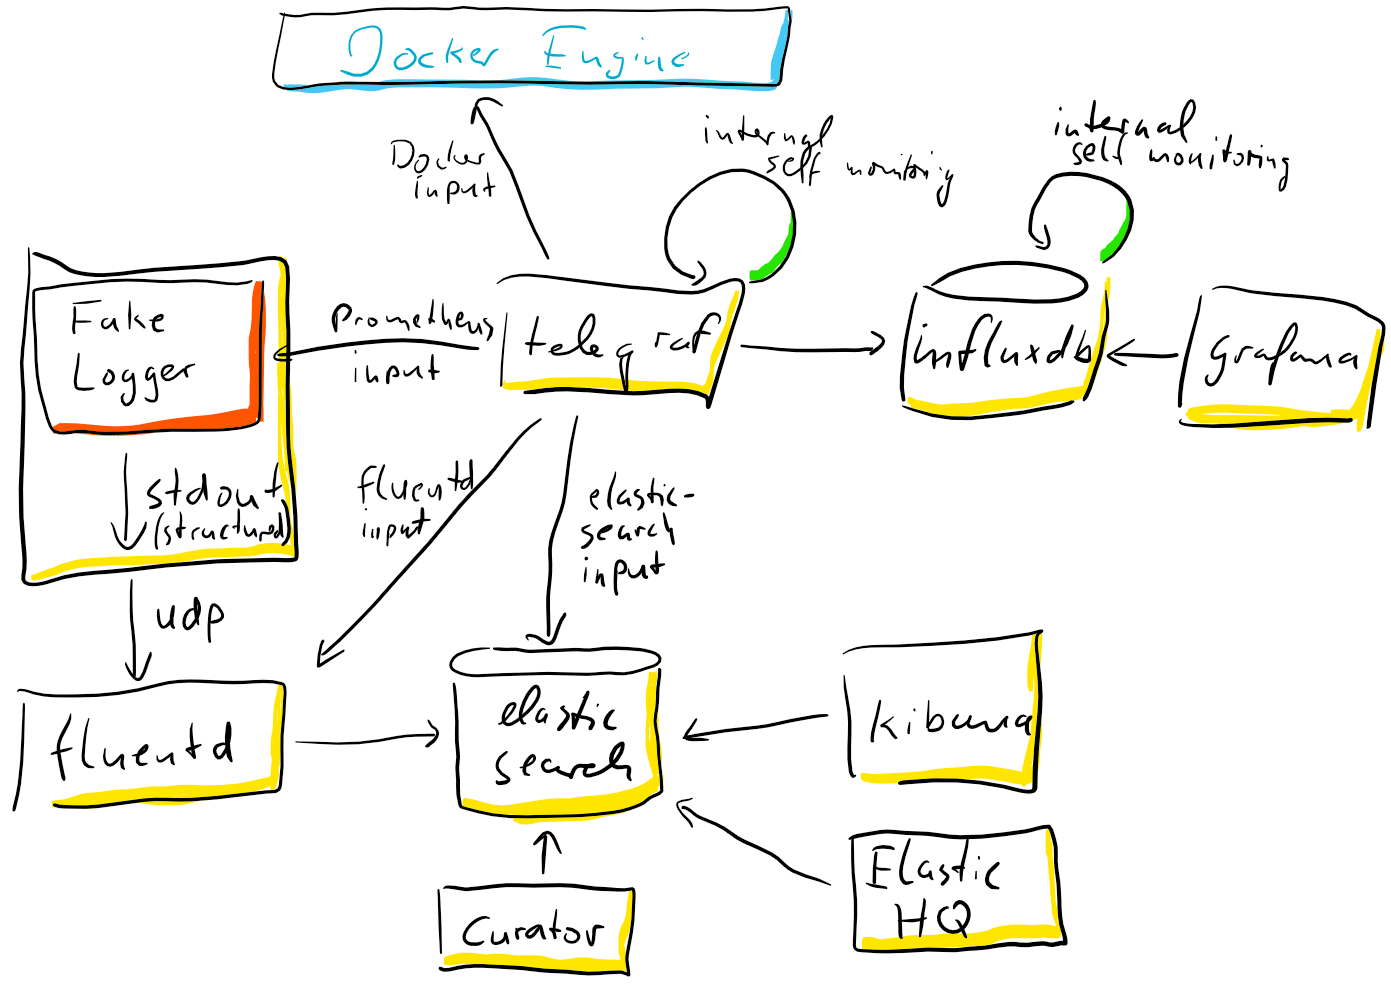 Docker Engine
Docker
input
internal
self monitoring
internal
self monitoring
Fake
Logger
Prometheus
input
telegraf
influxdb
Grafana
stdout
(structured)
fluentd
input
elastic-
search
input
udp
fluentd
elastic
search
kibana
Elastic
HQ
Curator